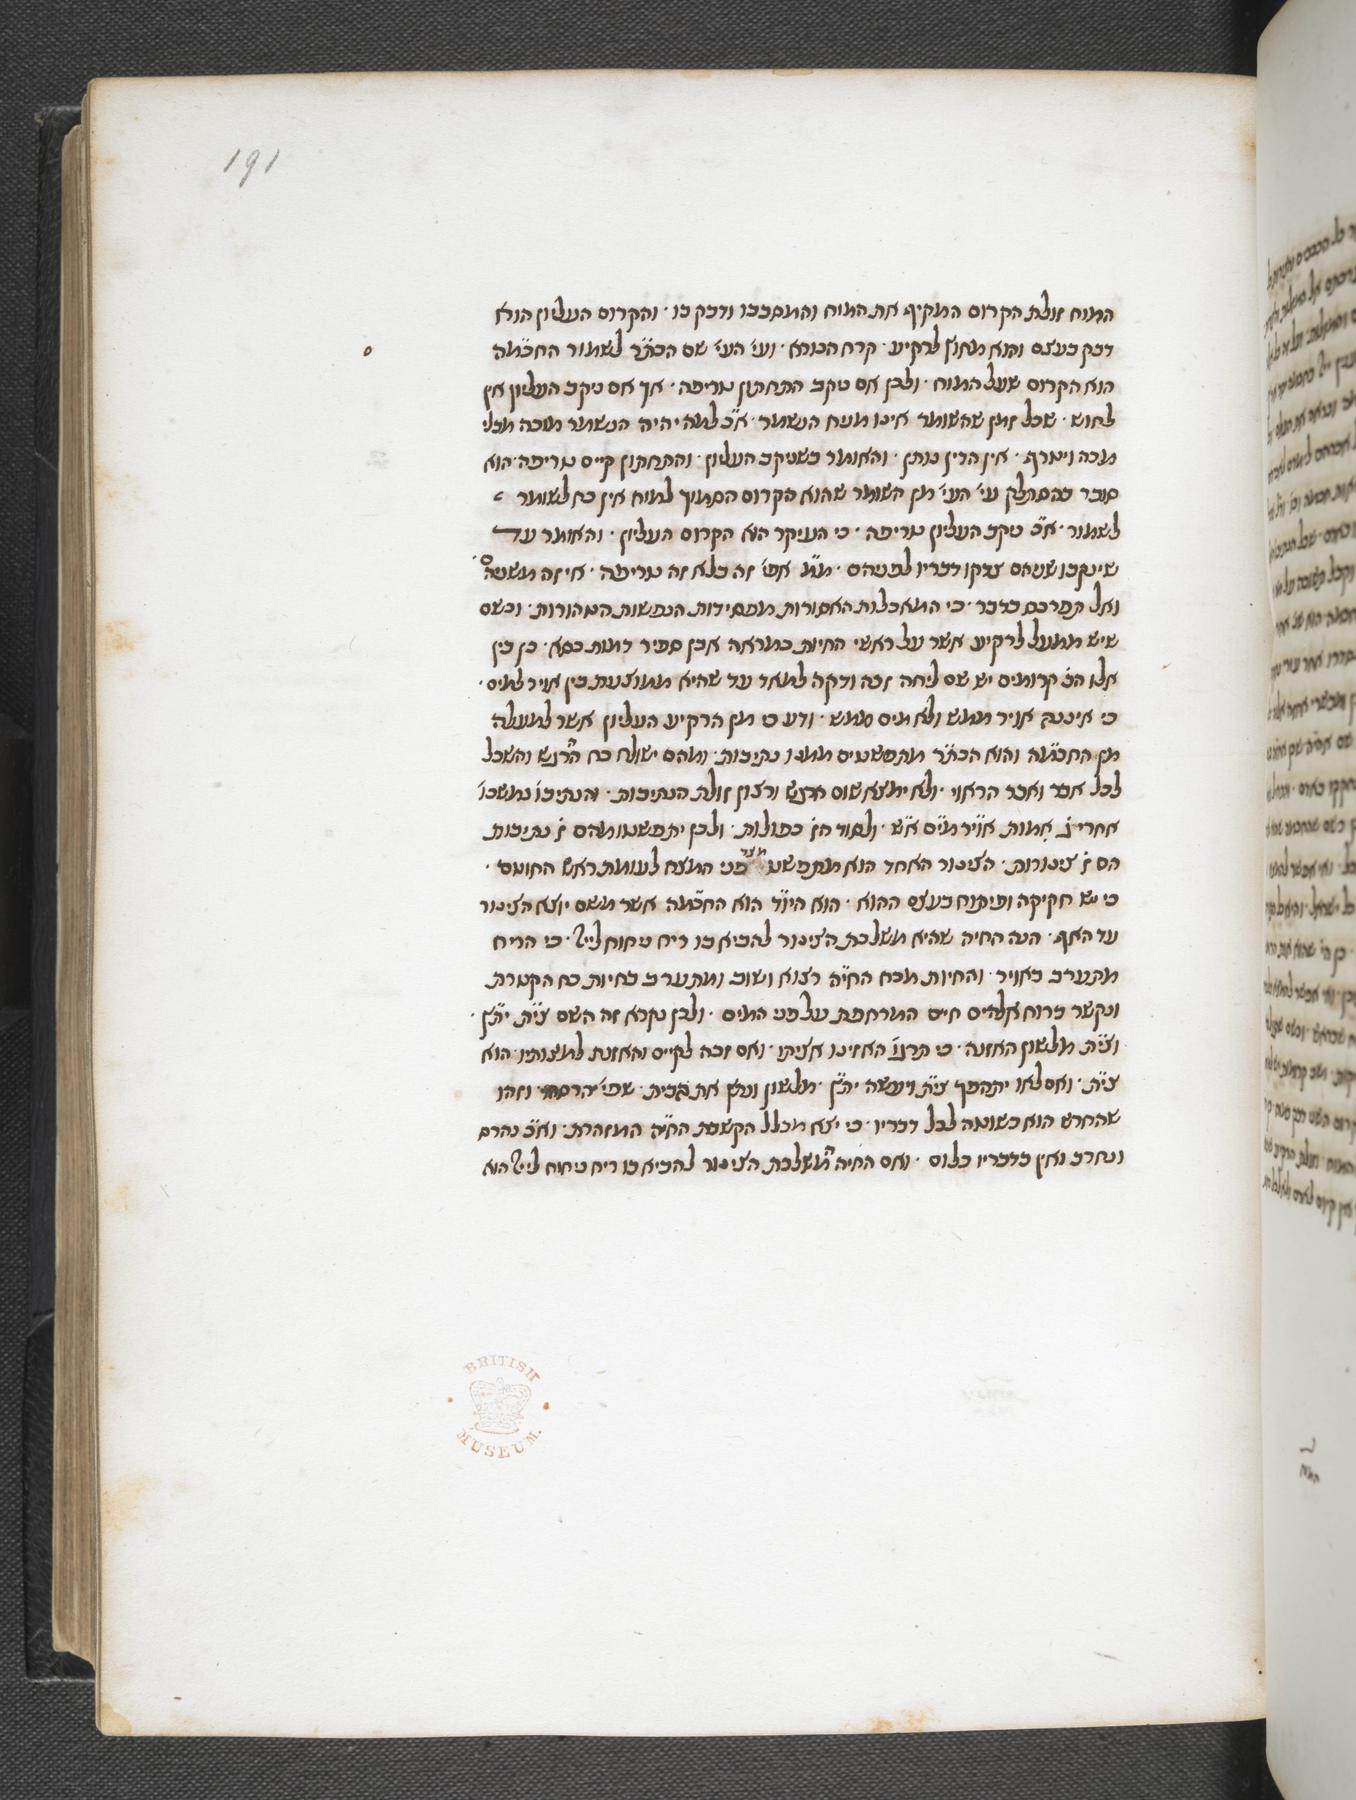 191
המוח זולת הקרום המקיף את המוח והמסבבו ודבק בו · והקרום העליון הוא
דבק בעצם והוא מאוץ לרקיע · קרח הנורא · וע״ הע״ שם הכת״ר לשמור החכ״מה
הוא הקרום שעל המוח · ולכן אם ניקב התחתון טריפה · אך אם ניקב העליון אין
לחוש · שכל זמן שהשומר אינו מניח הנשמר · א״כ למה יהיה הנשמר מוכה מבלי
מכה ויטרף · אין הדין נותן · והאומר כשניקב העליון · והתחתון קיים טריפה · הוא
סובר בהסתלק ע״ הע״ מן השומר שהוא הקרום הסמוך למוח אין כח לשומר
לשמור · א״כ ניקב העליון טריפה · כי העיקר הוא הקרום העליון · והאומר עד
שינקבו שניהם צדקו דבריו לפניהם · מ״מ אפ׳ זה בלא זה טריפה · אי זה משניה
ואל תפרכס בדבר · כי המאכלות האסורות מפסידות הנפשות הטהורות · וכשם
שיש ממעל לרקיע אשר על ראשי החיות כמראה אבן ספיר דמות כסא · כן בין
אלו הב׳ קרומים יש שם ליחה זכה ודקה למאד עד שהיא ממוצעת בין אויר למים ·
כי איננה אויר ממש ולא מים ממש · ודע כי מן הרקיע העליון אשר למעלה
מן החכ״מה והוא הכת״ר מתפשטים ממנו נתיבות · ומהם ישולח כח הרגש והשכל
לכל אבר ואבר הראוי · ולא ימצא שום הרגש ורצון זולת הנתיבות · והנתיבו׳ נמשכו׳
אחרי ג׳ אמות אויר מים אש · ולסוד הן כפולות · ולכן יתפשטו מהם ז׳ נתיבות
הם ז׳ צינורות · הצינור האחד הוא מתפשט מצד פני המצח לעומת ראש החוטם ·
כי יש חקיקה ופיתוח בעצם ההוא · הוא היו״ד הוא החכ״מה אשר משם יוצא הצינור
עד האף · הנה החיה שהיא משלכת הצינור להביא בו ריח ניחוח לייי · כי הריח
מתערב באויר · והחיות מכח החי״ה רצוא ושוב ומתערב בחיות כח הקטרת
ונקשר ברוח אלהים חיים המרחפת על פני המים · ולכן נקרא זה השם צי״ת ית״ץ ·
וצי״ת מלשון האזנה · כי תרגו׳ האזינו אציתו · ואם זכה לקיים והאזנת למצותיו הוא
צי״ת · ואם לאו יתהפך צי״ת ויעשה ית״ץ · מלשון ונתץ את הבית · שפי׳ יהרסהו · וזהו
שהחרש הוא כשוטה לכל דבריו · כי יצא מכלל הקשבת החי״ה המזהרת · וא״כ נהרס
ונחרב ואין בדבריו כלום · ואם החיה משלכת הצינור להביא בו ריח ניחוח לייי הוא
BRITISH
MUSEUM